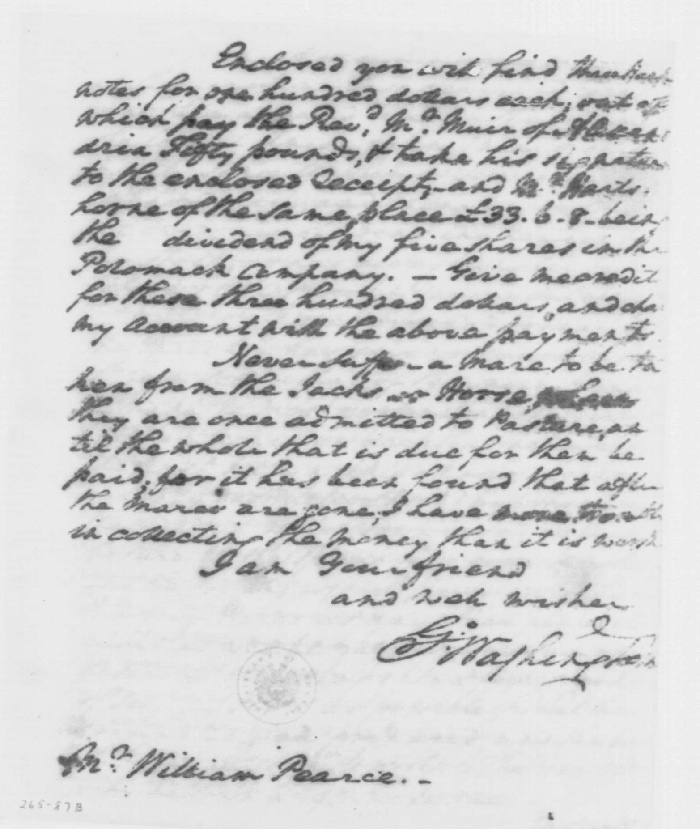 Enclosed you will find three Bank
notes for one hundred dollars each; out of
which pay the Revd. Mr. Muir of Alexan
dria Fifty pounds, & take his signature
to the enclosed receipt, and Mr. Harts-
horne of the same place £33.6.8. being
the dividend of my five shares in the
Potomack Company. — Give me credit
for these three hundred dollars, and cha
my account with the above payments.
Never suffer a Mare to be ta
ken from the Jacks or Horse
they are once admitted to Pasture, un
til the whole that is due for them be
paid; for it has been found that after
the mares are gone, I have more trouble
in collecting the money than it is worth
I am Your friend
and well wisher
Go: Washington
Mr. William Pearce. -
265-87B